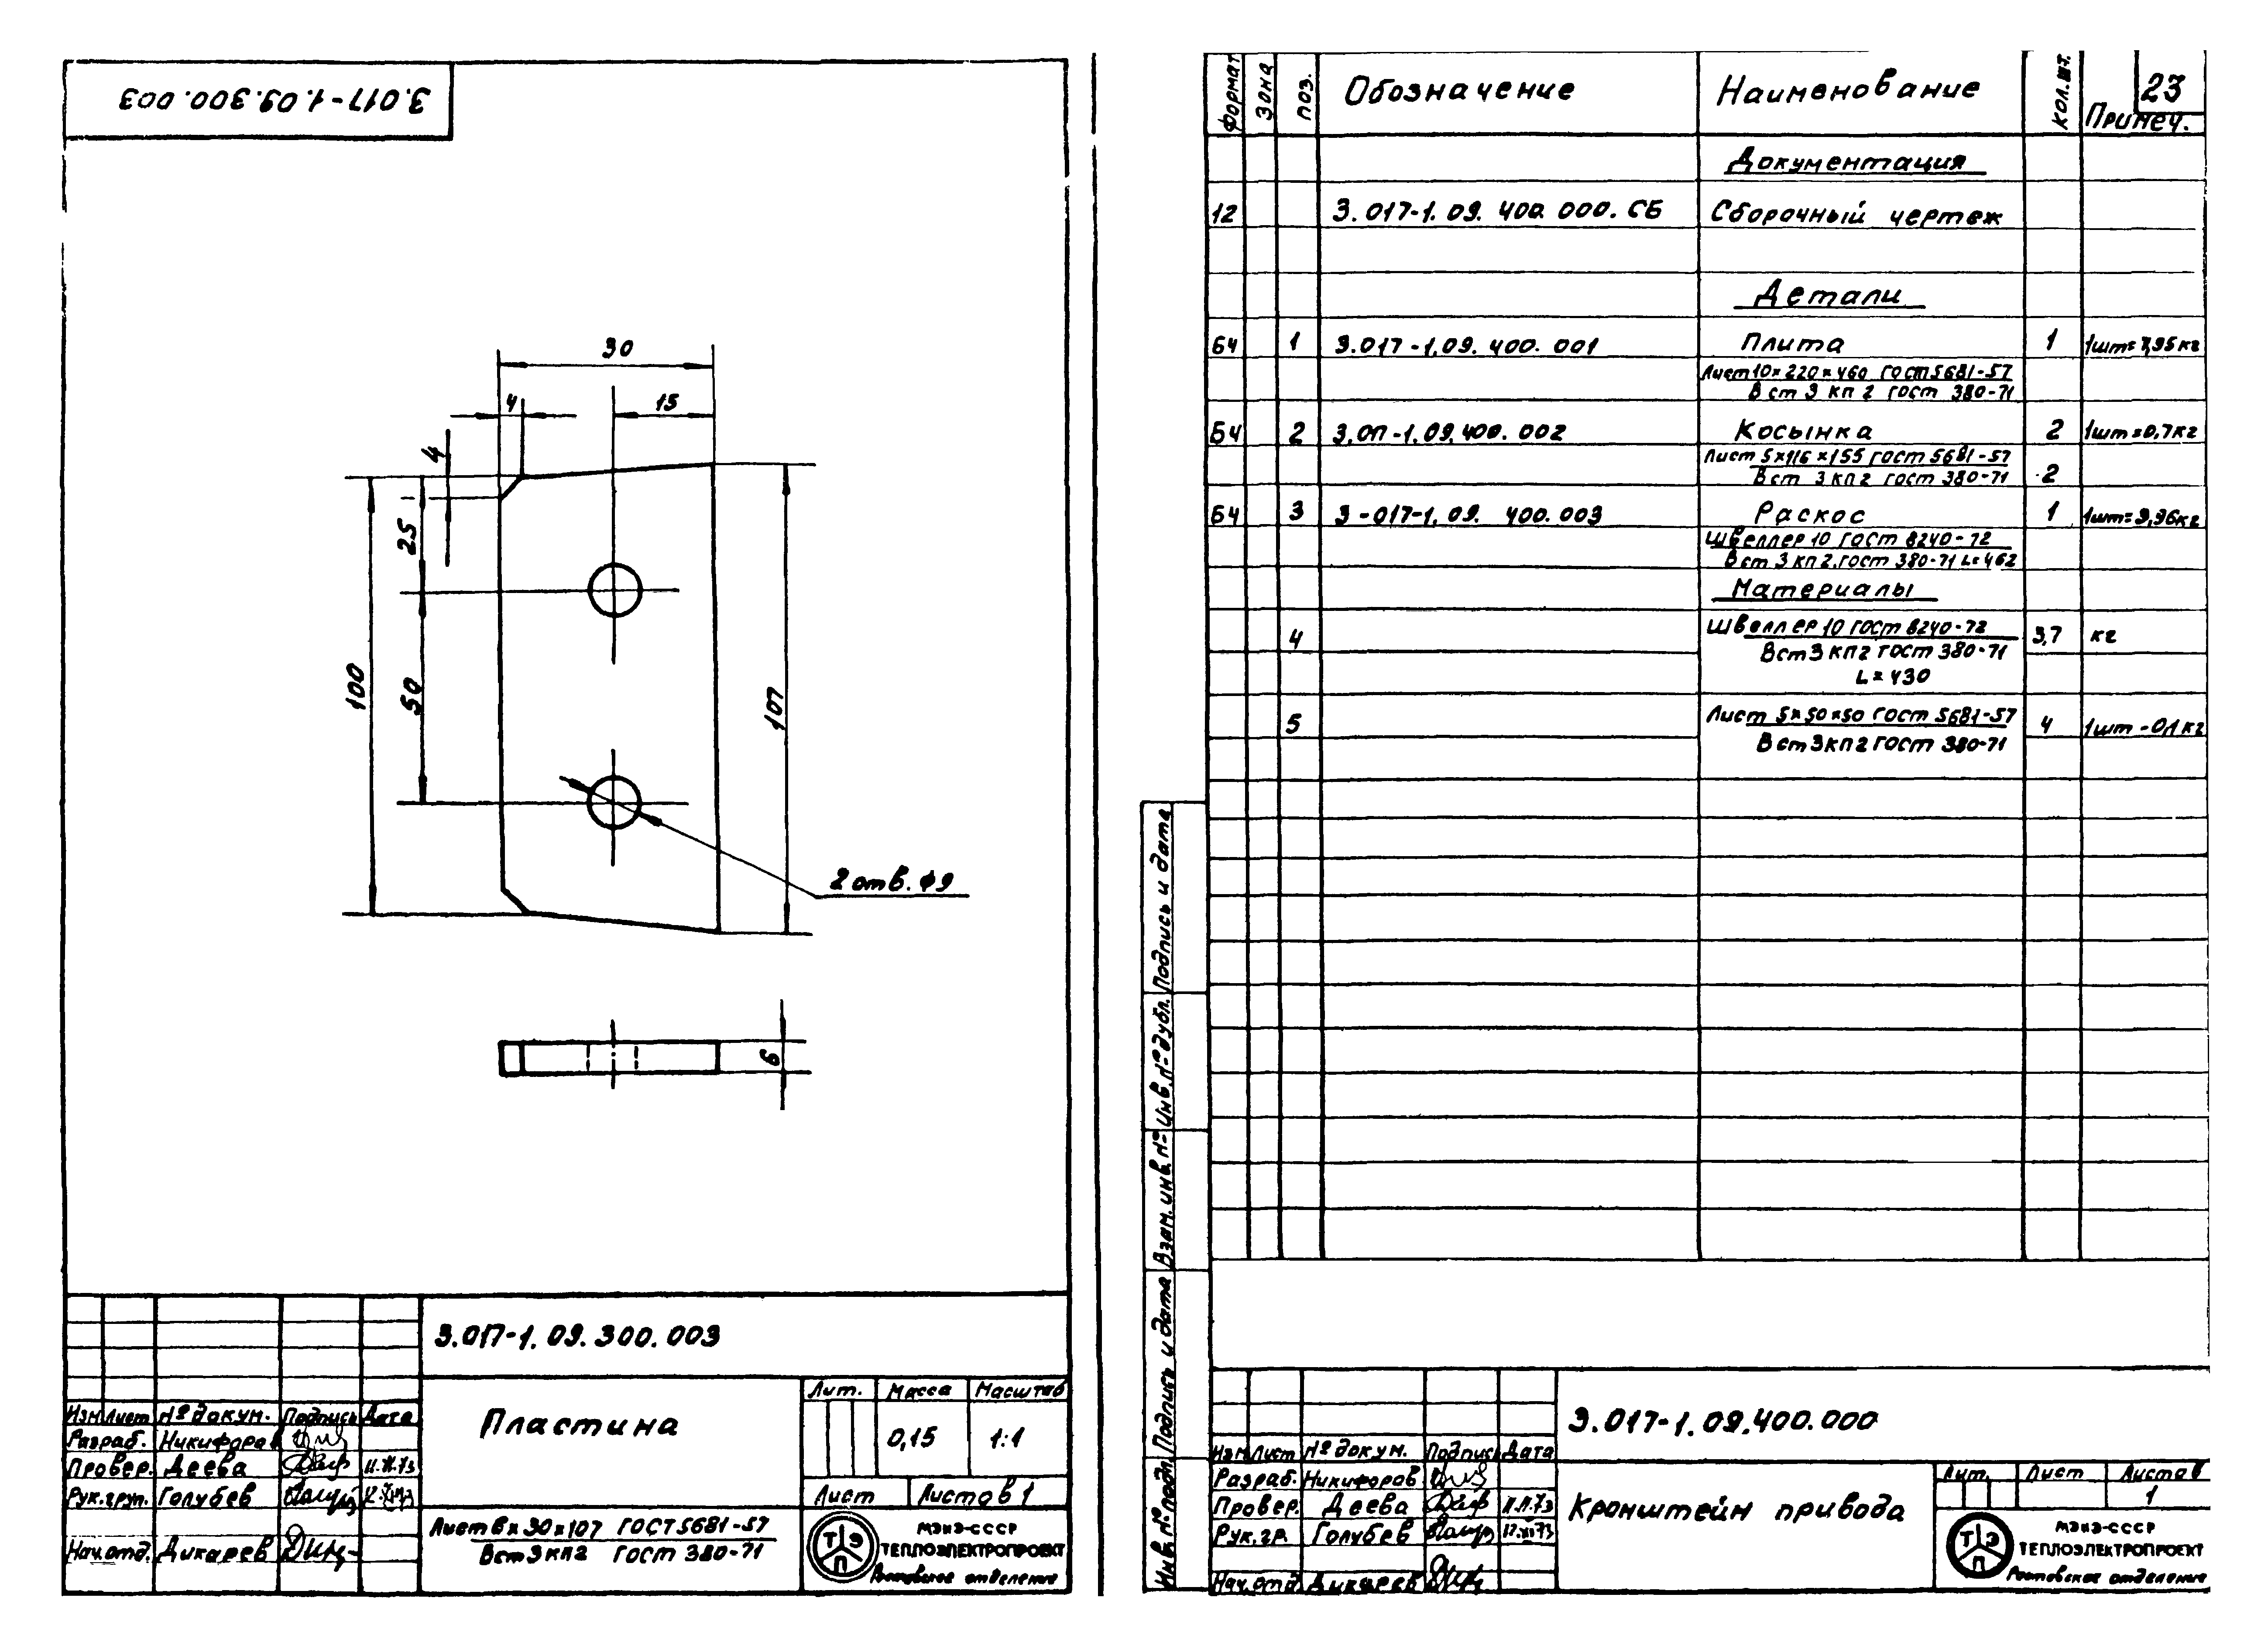 3.017-1.09.300.003
30
4
15
4
25
100
50
107
2 отв. ф9
6
3.017-1.09.300.003
Лит. Масса Масштаб
Изм Лист № докум. Подпись Дата
Пластина
0,15 1:1
Разраб. Никифоров
Провер. Деева
Рук.груп. Голубев
Лист Листов 1
Лист 6х30х107 ГОСТ 5681-57
Вст3кп2 ГОСТ 380-71
Нач.отд. Дикарев
ТЭП
МЭиЭ-СССР
ТЕПЛОЭЛЕКТРОПРОЕКТ
Ростовское отделение
23
Формат Зона Поз. Обозначение Наименование Кол.шт. Примеч.
Документация
12 3.017-1.09.400.000.СБ Сборочный чертеж
Детали
БЧ 1 3.017-1.09.400.001 Плита 1 1шт=7,95кг
Лист 10х220х460 ГОСТ 5681-57
Вст3кп2 ГОСТ 380-71
БЧ 2 3.017-1.09.400.002 Косынка 2 1шт=0,7кг
Лист 5х116х155 ГОСТ 5681-57
Вст3кп2 ГОСТ 380-71 2
БЧ 3 3-017-1.09.400.003 Раскос 1 1шт=3,96кг
Швеллер 10 ГОСТ 8240-72
Вст3кп2.ГОСТ 380-71 L=462
Материалы
4 Швеллер 10 ГОСТ 8240-72 3,7 кг
Вст3кп2 ГОСТ 380-71
L=430
5 Лист 5х50х50 ГОСТ 5681-57 4 1шт-0,1кг
Вст3кп2 ГОСТ 380-71
Подпись и дата
Инв.№ дубл.
Взам.инв.№
Подпись и дата
Инв.№ подл.
3.017-1.09.400.000
Изм Лист № докум. Подпись Дата
Разраб. Никифоров
Провер. Деева
Рук.гр. Голубев
Нач.отд. Дикарев
Кронштейн привода
Лит. Лист Листов
1
ТЭП
МЭиЭ-СССР
ТЕПЛОЭЛЕКТРОПРОЕКТ
Ростовское отделение